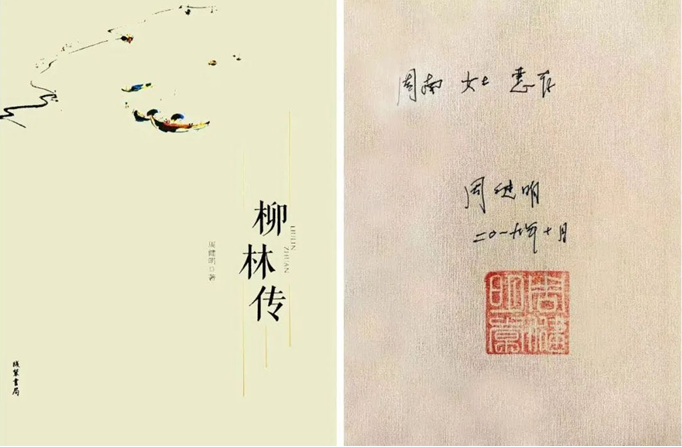 柳林传
LIULIN
ZHUAN
周健明◎著
线装书局
周南 女士 惠存
周健明
二〇一九年十月